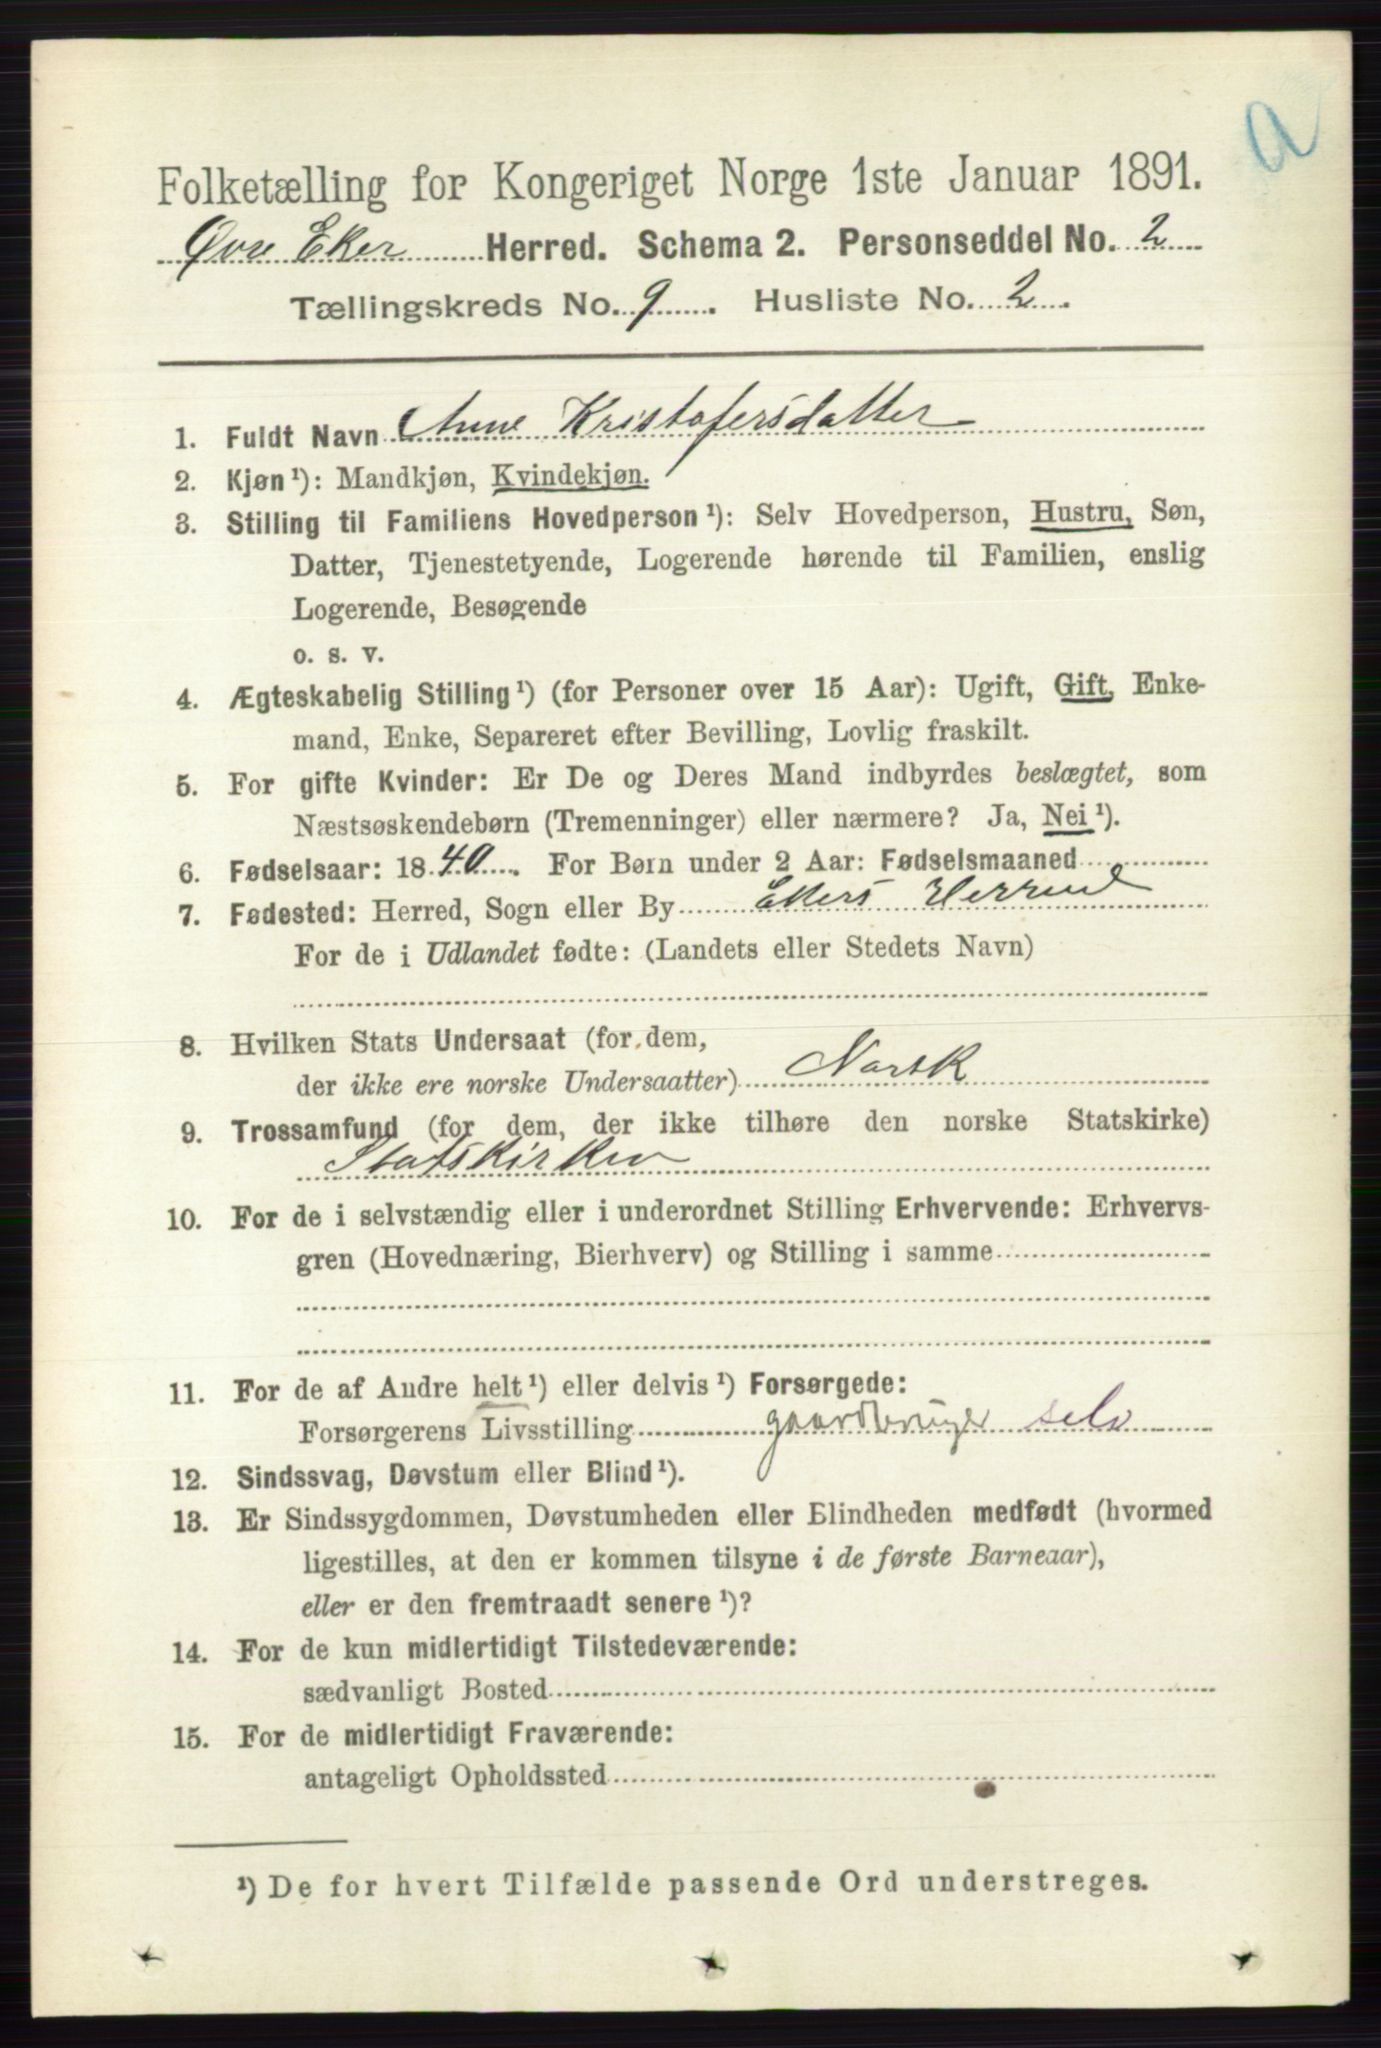 a
Folketælling for Kongeriget Norge 1ste Januar 1891.
Øvre Eker Herred. Schema 2. Personseddel No. 2
Tællingskreds No. 9. Husliste No. 2.
1. Fuldt Navn Anne Kristofersdatter
2. Kjøn ¹): Mandkjøn, Kvindekjøn.
3. Stilling til Familiens Hovedperson ¹): Selv Hovedperson, Hustru, Søn,
Datter, Tjenestetyende, Logerende hørende til Familien, enslig
Logerende, Besøgende
o. s. v.
4. Ægteskabelig Stilling ¹) (for Personer over 15 Aar): Ugift, Gift, Enke-
mand, Enke, Separeret efter Bevilling, Lovlig fraskilt.
5. For gifte Kvinder: Er De og Deres Mand indbyrdes beslægtet, som
Næstsøskendebørn (Tremenninger) eller nærmere? Ja, Nei ¹).
6. Fødselsaar: 1840. For Børn under 2 Aar: Fødselsmaaned
7. Fødested: Herred, Sogn eller By Ekers Herred
For de i Udlandet fødte: (Landets eller Stedets Navn)
8. Hvilken Stats Undersaat (for dem,
der ikke ere norske Undersaatter) Norsk
9. Trossamfund (for dem, der ikke tilhøre den norske Statskirke)
Statskirken
10. For de i selvstændig eller i underordnet Stilling Erhvervende: Erhvervs-
gren (Hovednæring, Bierhverv) og Stilling i samme
11. For de af Andre helt ¹) eller delvis ¹) Forsørgede:
Forsørgerens Livsstilling gaardbruger selv
12. Sindssvag, Døvstum eller Blind ¹).
13. Er Sindssygdommen, Døvstumheden eller Blindheden medfødt (hvormed
ligestilles, at den er kommen tilsyne i de første Barneaar),
eller er den fremtraadt senere ¹)?
14. For de kun midlertidigt Tilstedeværende:
sædvanligt Bosted
15. For de midlertidigt Fraværende:
antageligt Opholdssted
¹) De for hvert Tilfælde passende Ord understreges.